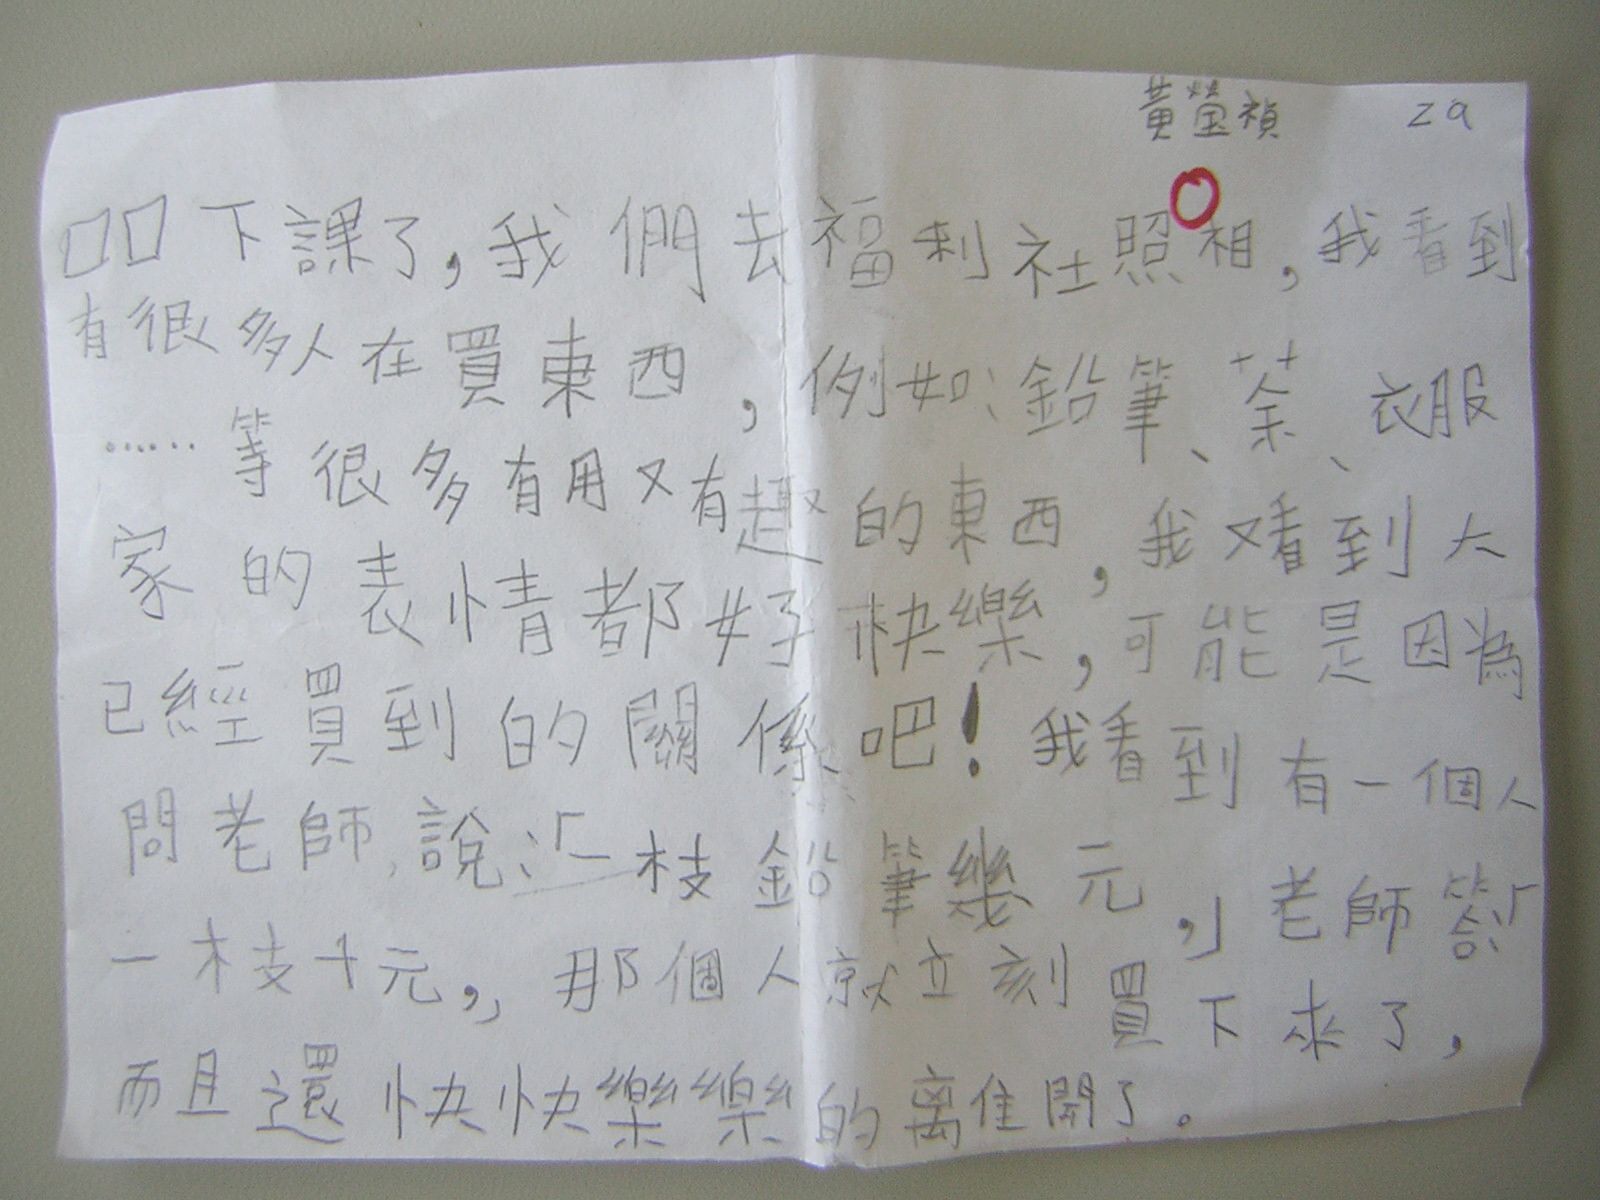 黃瑩禎 29
□□下課了，我們去福利社照相，我看到
有很多人在買東西，例如：鉛筆、茶、衣服
……等很多有用又有趣的東西，我又看到大
家的表情都好快樂，可能是因為
已經買到的關係吧！我看到有一個人
問老師，說：「一枝鉛筆幾元，」老師答：「
一枝十元，」那個人就立刻買下來了，
而且還快快樂樂的離開了。